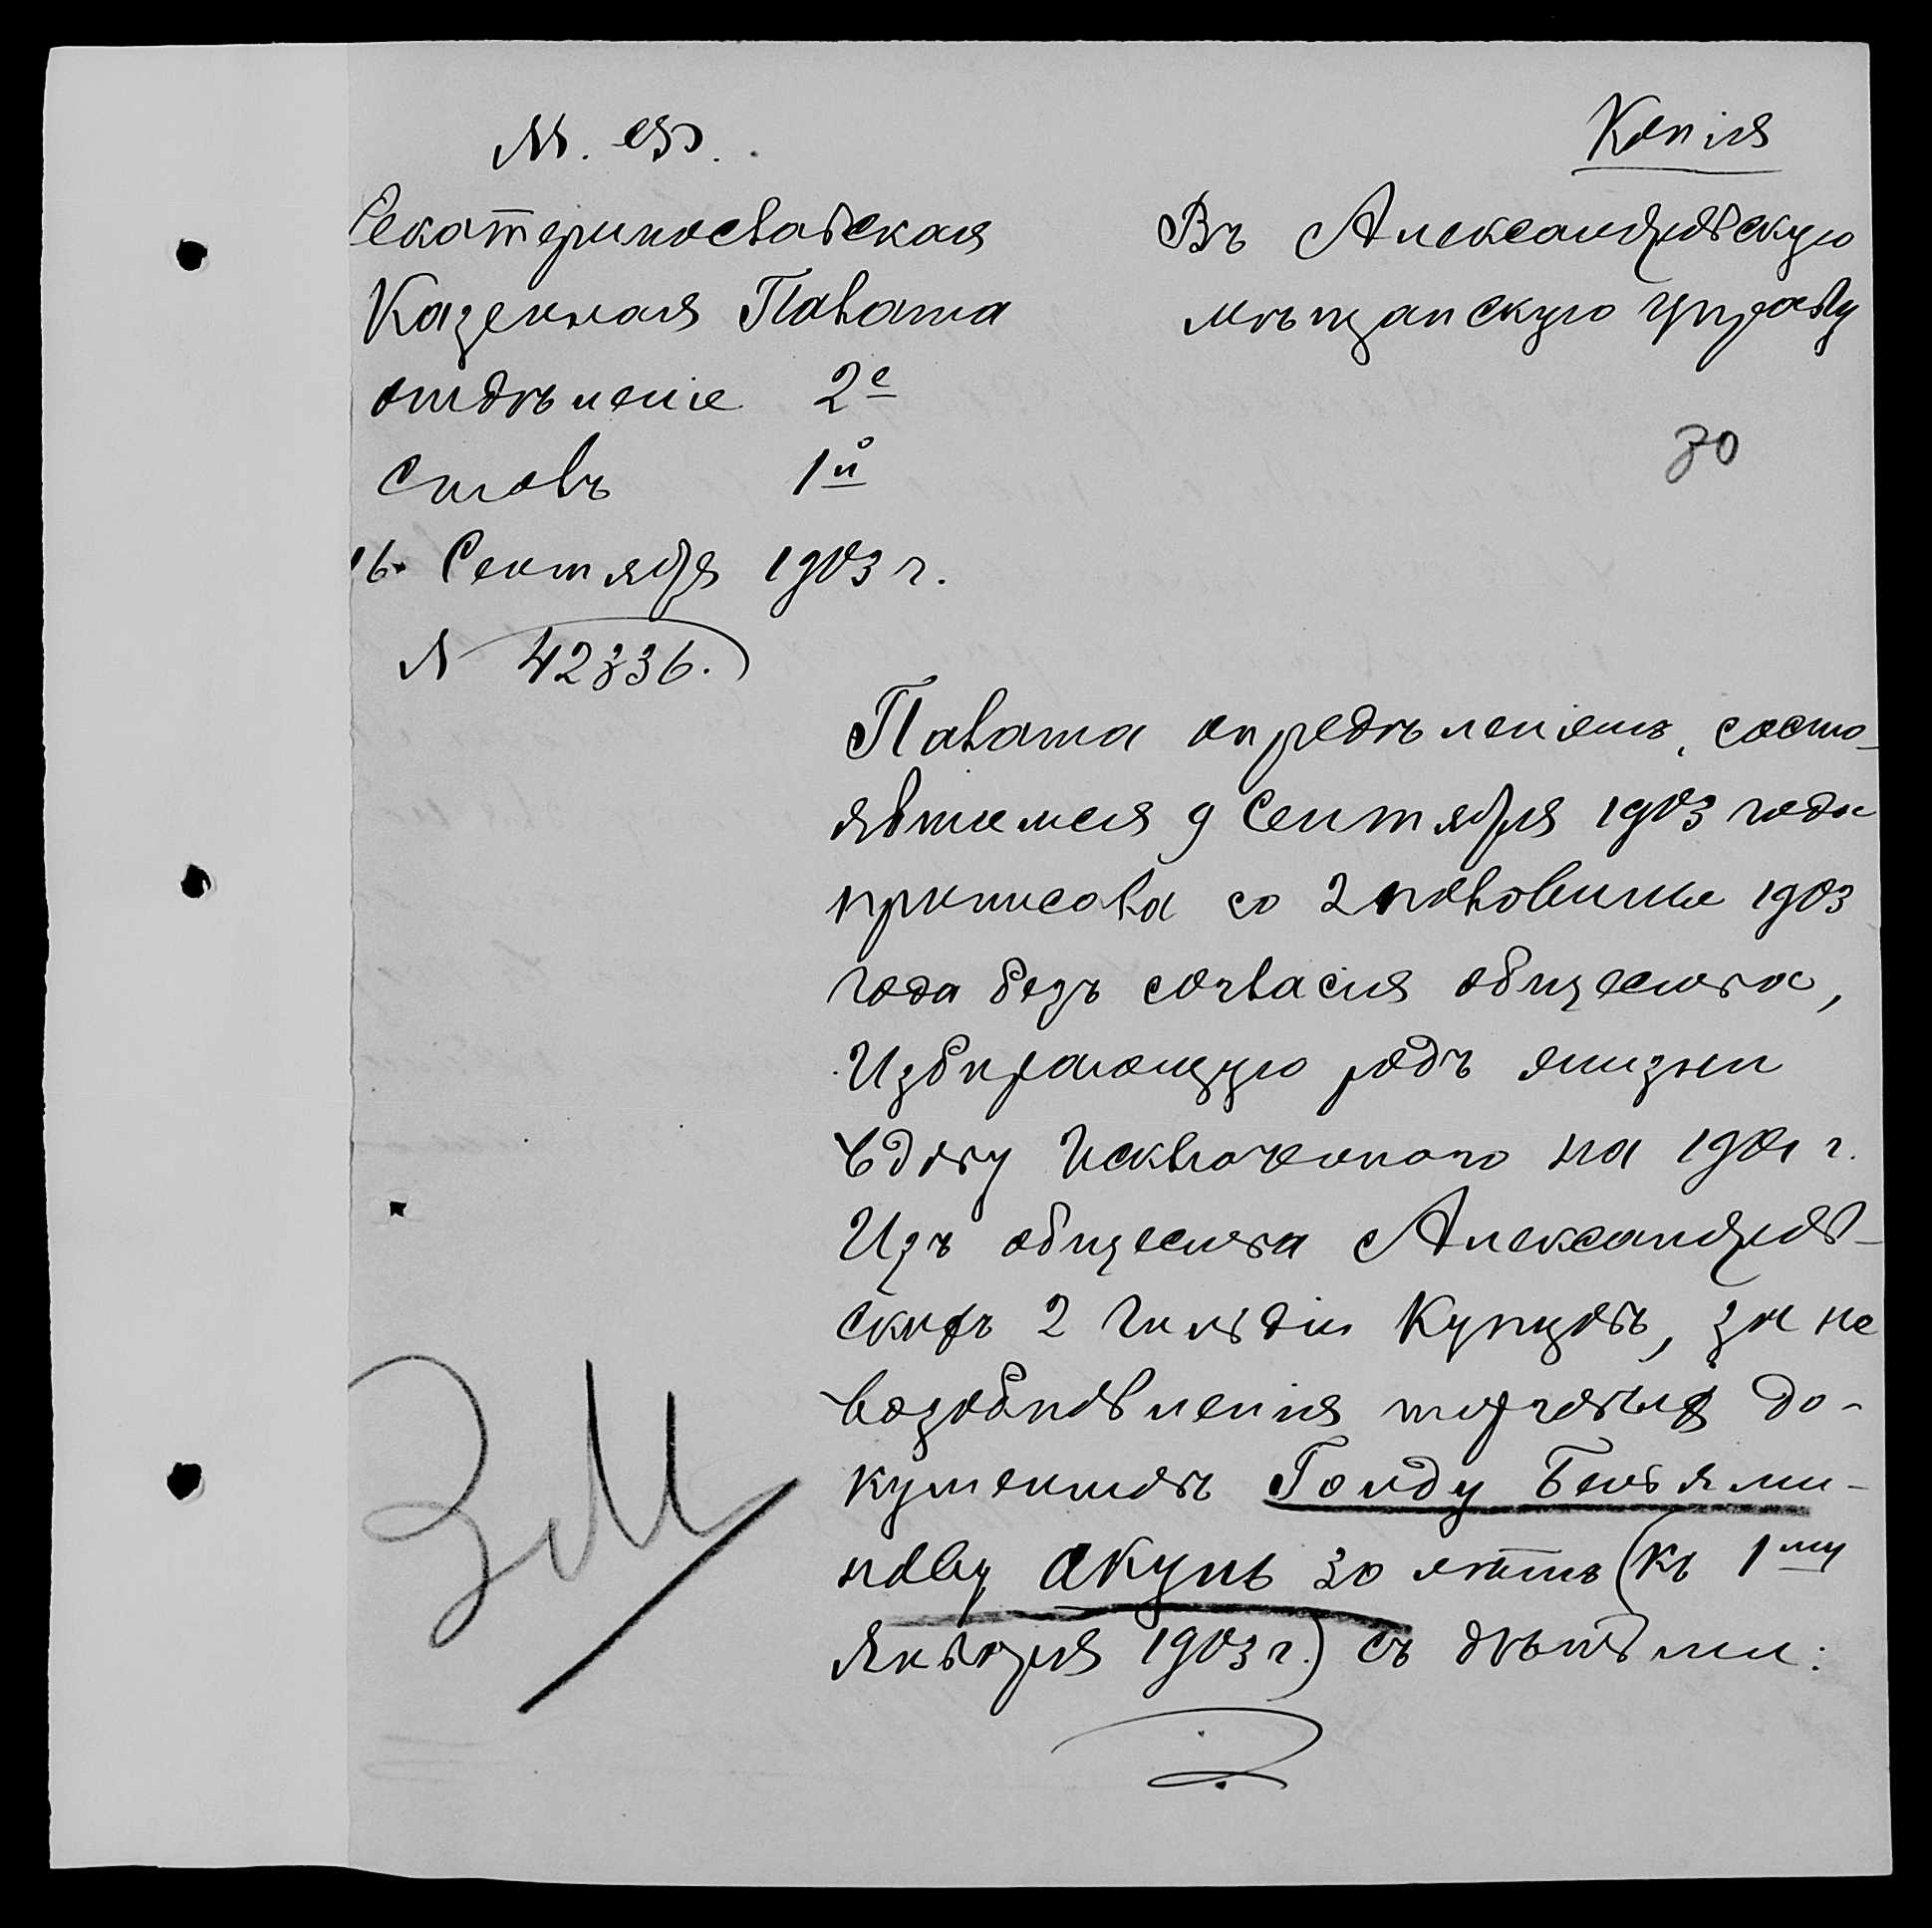 М. Ф.
Копія
Екатеринославская
Казенная Палата
отдѣленіе 2е
Столъ 1й
16 Сентября 1903 г.
№ 42336.
Въ Александровскую
мѣщанскую управу
30
Палата опредѣленіемъ, состо-
явшимся 9 Сентября 1903 года
приписала со 2 половины 1903
года безъ согласія общества,
Избирающую родъ жизни
вдову Исключеннаго на 1901 г.
Изъ общества Александров-
скихъ 2 гильдіи Купцовъ, за не
возобновленія торговыхъ до-
кументовъ Гольду Беньями-
нову Окунь 30 лѣтъ (къ 1му
Января 1903 г.) съ дѣтьми: